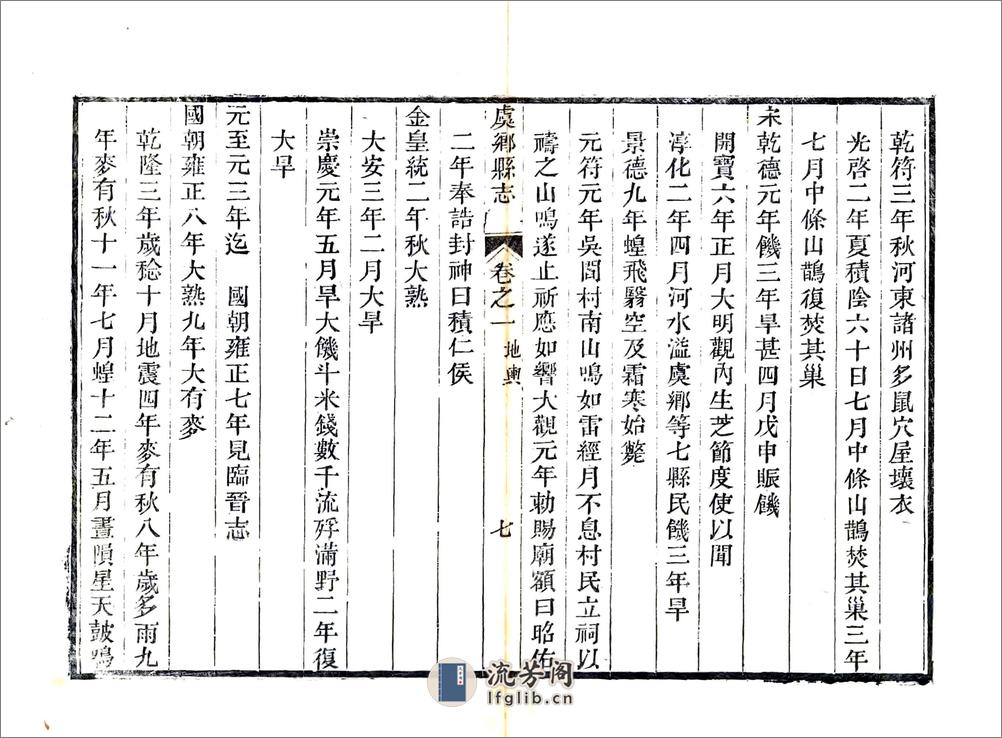 乾符三年秋河東諸州多鼠穴屋壞衣
光啓二年夏積陰六十日七月中條山鵲焚其巢三年
七月中條山鵲復焚其巢
宋乾德元年饑三年旱甚四月戊申賑饑
開寶六年正月大明觀內生芝節度使以聞
淳化二年四月河水溢虞鄉等七縣民饑三年旱
景德九年蝗飛翳空及霜寒始斃
元符元年吳閻村南山鳴如雷經月不息村民立祠以
禱之山鳴遂止祈應如響大觀元年勅賜廟額曰昭佑
虞鄉縣志
卷之一
地輿
七
二年奉誥封神曰積仁侯
金皇統二年秋大熟
大安三年二月大旱
崇慶元年五月旱大饑斗米錢數千流殍滿野二年復
大旱
元至元三年迄　國朝雍正七年見臨晉志
國朝雍正八年大熟九年大有麥
乾隆三年歲稔十月地震四年麥有秋八年歲多雨九
年麥有秋十一年七月蝗十二年五月晝隕星天鼓鳴
流芳阁
lfglib.cn